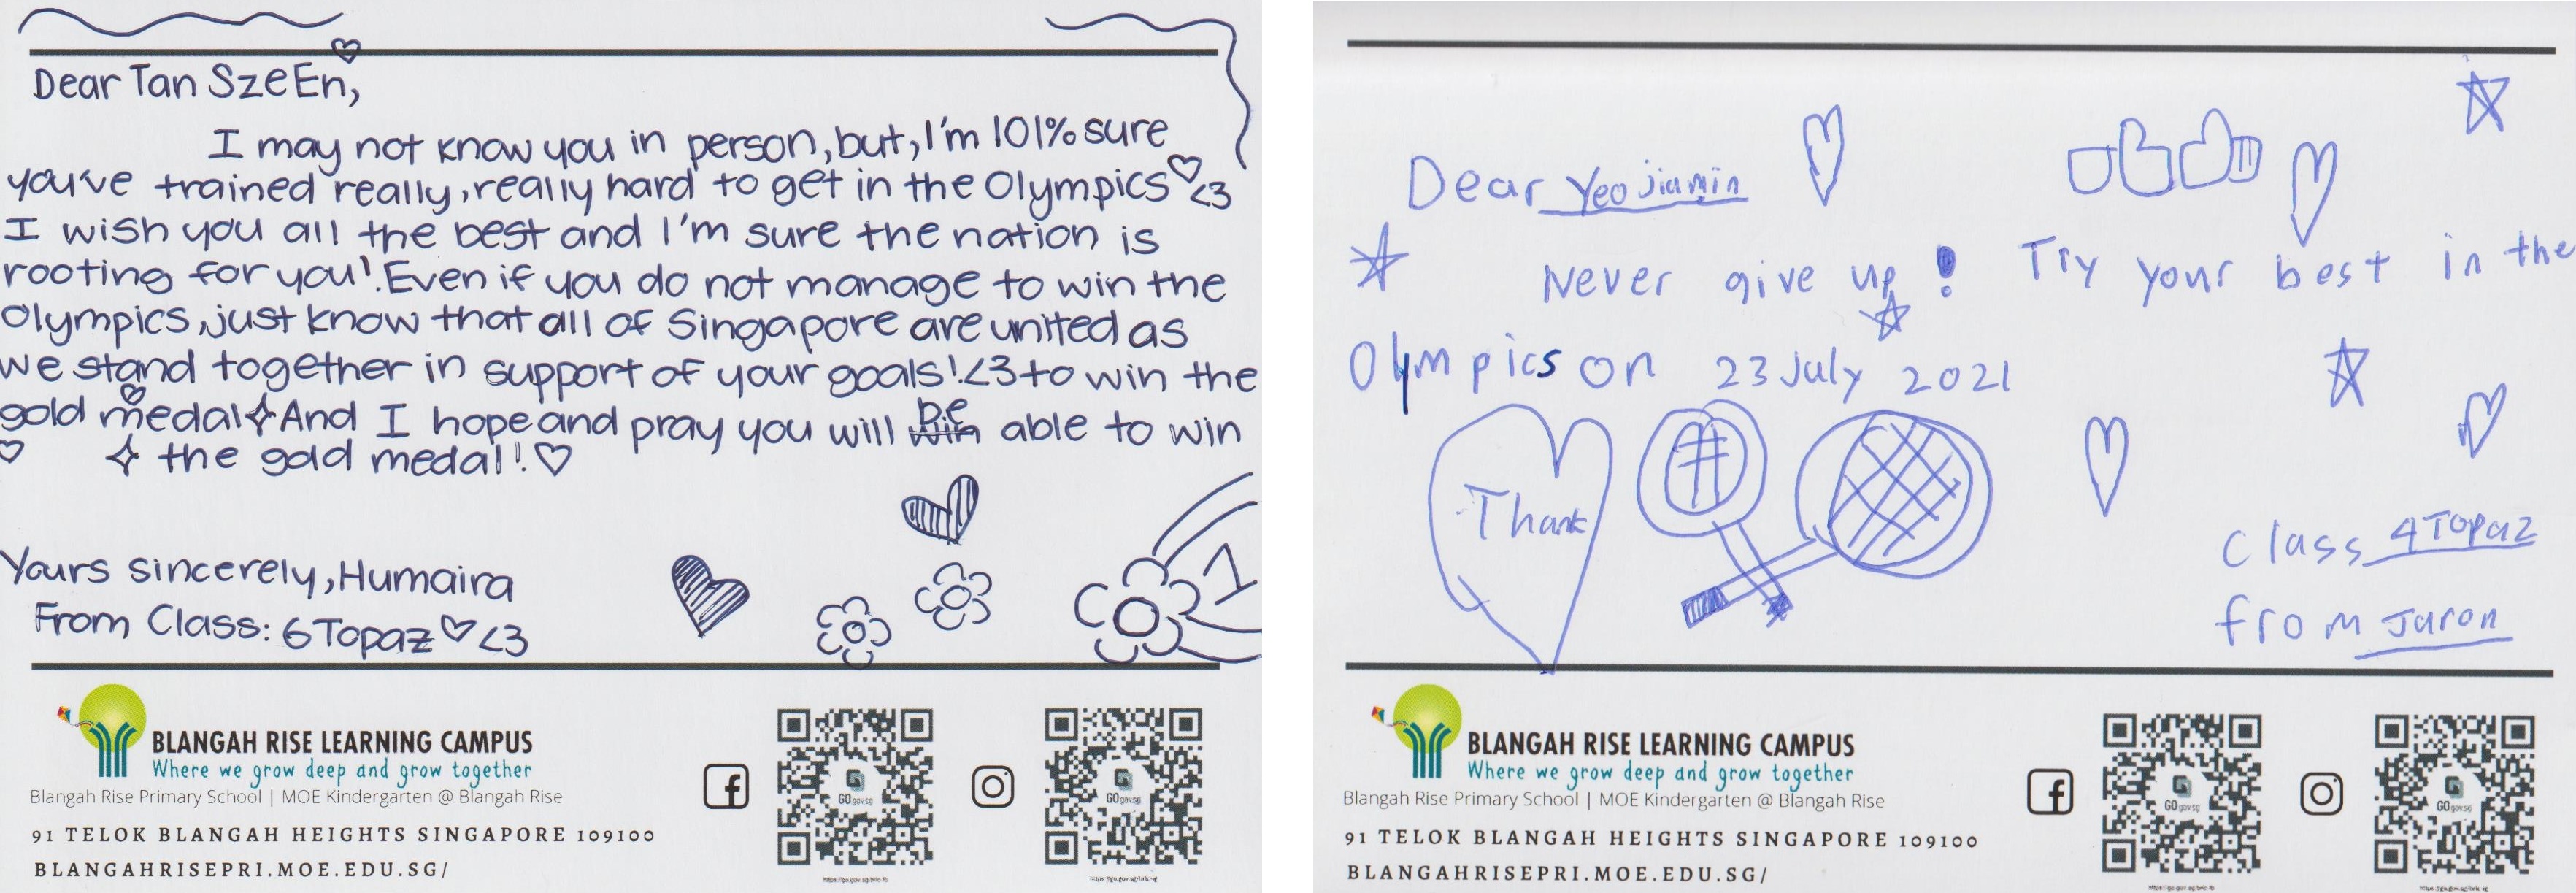 Dear Tan Sze En,
I may not know you in person, but, I'm 101% sure
you've trained really, really hard to get in the Olympics♡<3
I wish you all the best and I'm sure the nation is
rooting for you! Even if you do not manage to win the
Olympics, just know that all of Singapore are united as
we stand together in support of your goals! <3 to win the
gold medal✧ And I hope and pray you will be able to win
✧ the gold medal! ♡
Yours sincerely, Humaira
From Class: 6 Topaz ♡ <3
1
BLANGAH RISE LEARNING CAMPUS
Where we grow deep and grow together
Blangah Rise Primary School | MOE Kindergarten @ Blangah Rise
91 TELOK BLANGAH HEIGHTS SINGAPORE 109100
BLANGAHRISEPRI.MOE.EDU.SG/
GO gov.sg
GO gov.sg
Dear Yeo jiamin
Never give up! Try your best in the
Olympics on 23 July 2021
Thank
Class 4 Topaz
from Jaron
BLANGAH RISE LEARNING CAMPUS
Where we grow deep and grow together
Blangah Rise Primary School | MOE Kindergarten @ Blangah Rise
91 TELOK BLANGAH HEIGHTS SINGAPORE 109100
BLANGAHRISEPRI.MOE.EDU.SG/
GO gov.sg
GO gov.sg